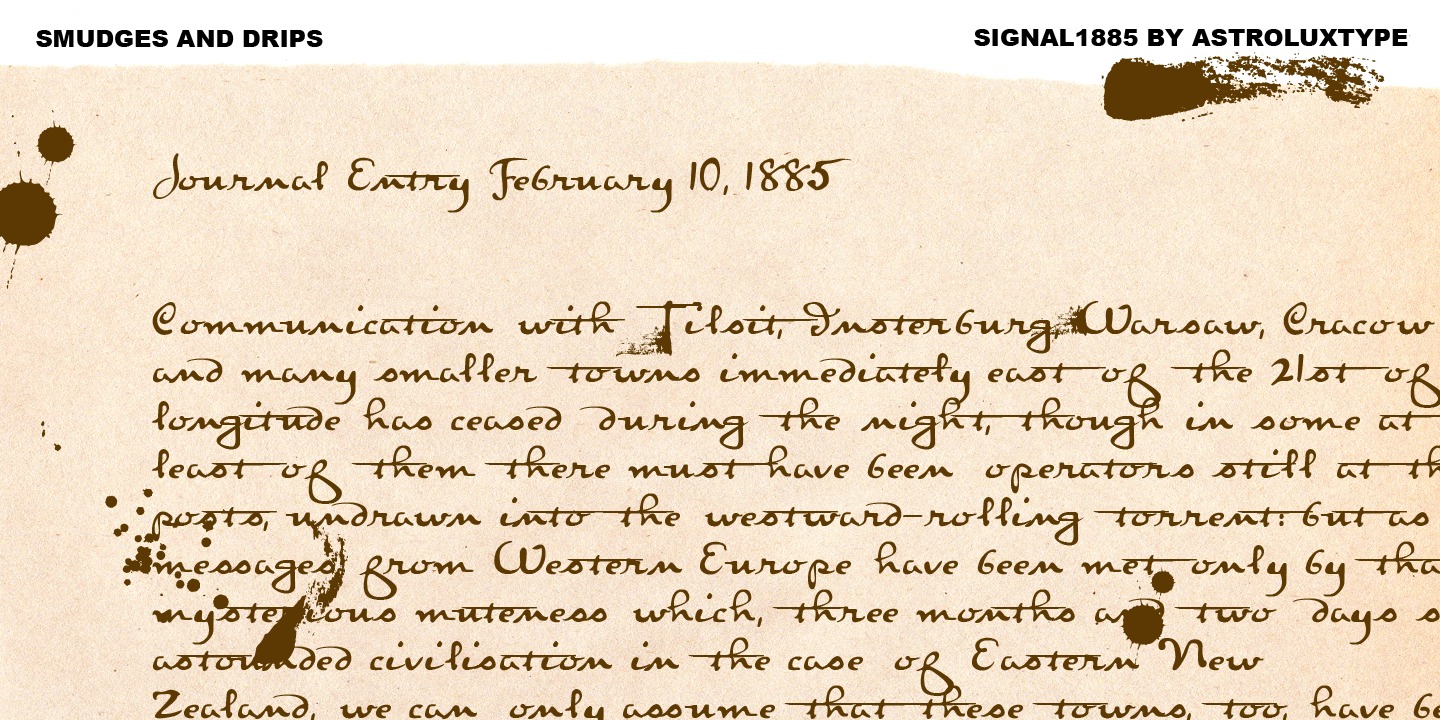 SMUDGES AND DRIPS
SIGNAL1885 BY ASTROLUXTYPE
Journal Entry February 10, 1885
Communication with Tilsit, Insterburg Warsaw, Cracow
and many smaller towns immediately east of the 21st of
longitude has ceased during the night, though in some at
least of them there must have been operators still at th
posts, undrawn into the westward-rolling torrent: but as
messages from Western Europe have been met only by tha
mysterious muteness which, three months and two days s
astounded civilisation in the case of Eastern New
Zealand, we can only assume that these towns, too, have be